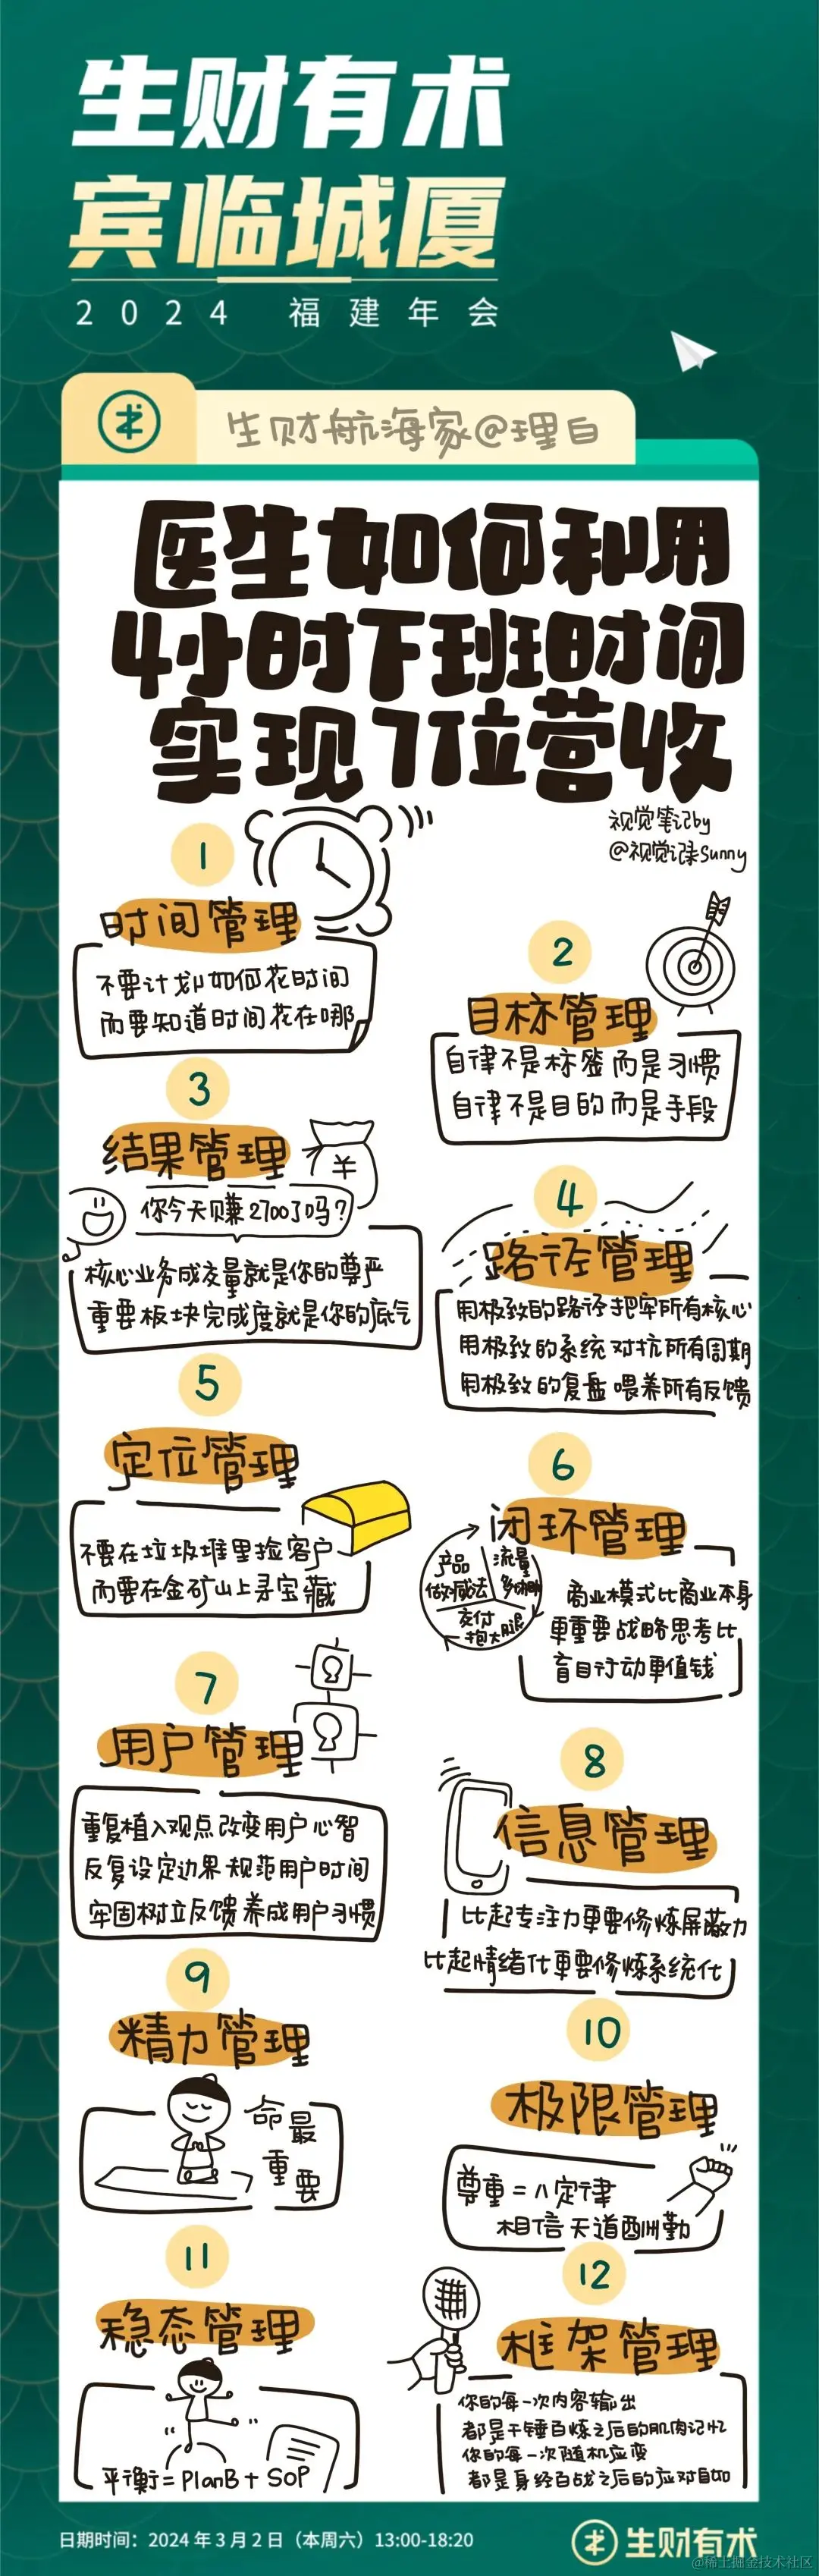 生财有术
宾临城厦
2024 福建年会
生财航海家@理白
医生如何利用
4小时下班时间
实现7位营收
视觉笔记by
@视觉记录Sunny
1
时间管理
不要计划如何花时间
而要知道时间花在哪
2
目标管理
自律不是标签而是习惯
自律不是目的而是手段
3
结果管理
¥
你今天赚2700了吗?
核心业务成交量就是你的尊严
重要板块完成度就是你的底气
4
路径管理
用极致的路径把牢所有核心
用极致的系统对抗所有周期
用极致的复盘喂养所有反馈
5
定位管理
不要在垃圾堆里捡客户
而要在金矿山上寻宝藏
6
闭环管理
产品
做减法
流量
交付
抱大腿
商业模式比商业本身
更重要战略思考比
盲目行动更值钱
7
用户管理
重复植入观点改变用户心智
反复设定边界规范用户时间
牢固树立反馈养成用户习惯
8
信息管理
比起专注力更要修炼屏蔽力
比起情绪化更要修炼系统化
9
精力管理
命最
重要
10
极限管理
尊重二八定律
相信天道酬勤
11
稳态管理
平衡=PlanB+SOP
12
框架管理
你的每一次内容输出
都是千锤百炼之后的肌肉记忆
你的每一次随机应变
都是身经百战之后的应对自如
日期时间：2024年3月2日（本周六）13:00-18:20
生财有术
@稀土掘金技术社区